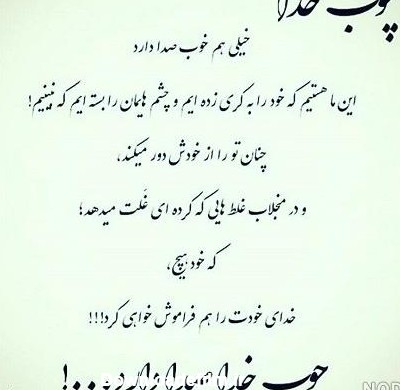 چوب خدا
خیلی هم خوب صدا دارد
این ما هستیم که خود را به کری زده ایم و چشم هایمان را بسته ایم که نبینیم!
چنان تو را از خودش دور میکند،
و در منجلاب غلط هایی که کرده ای غَلت میدهد؛
که خود هیچ،
خدای خودت را هم فراموش خواهی کرد!!!
چوب خدا